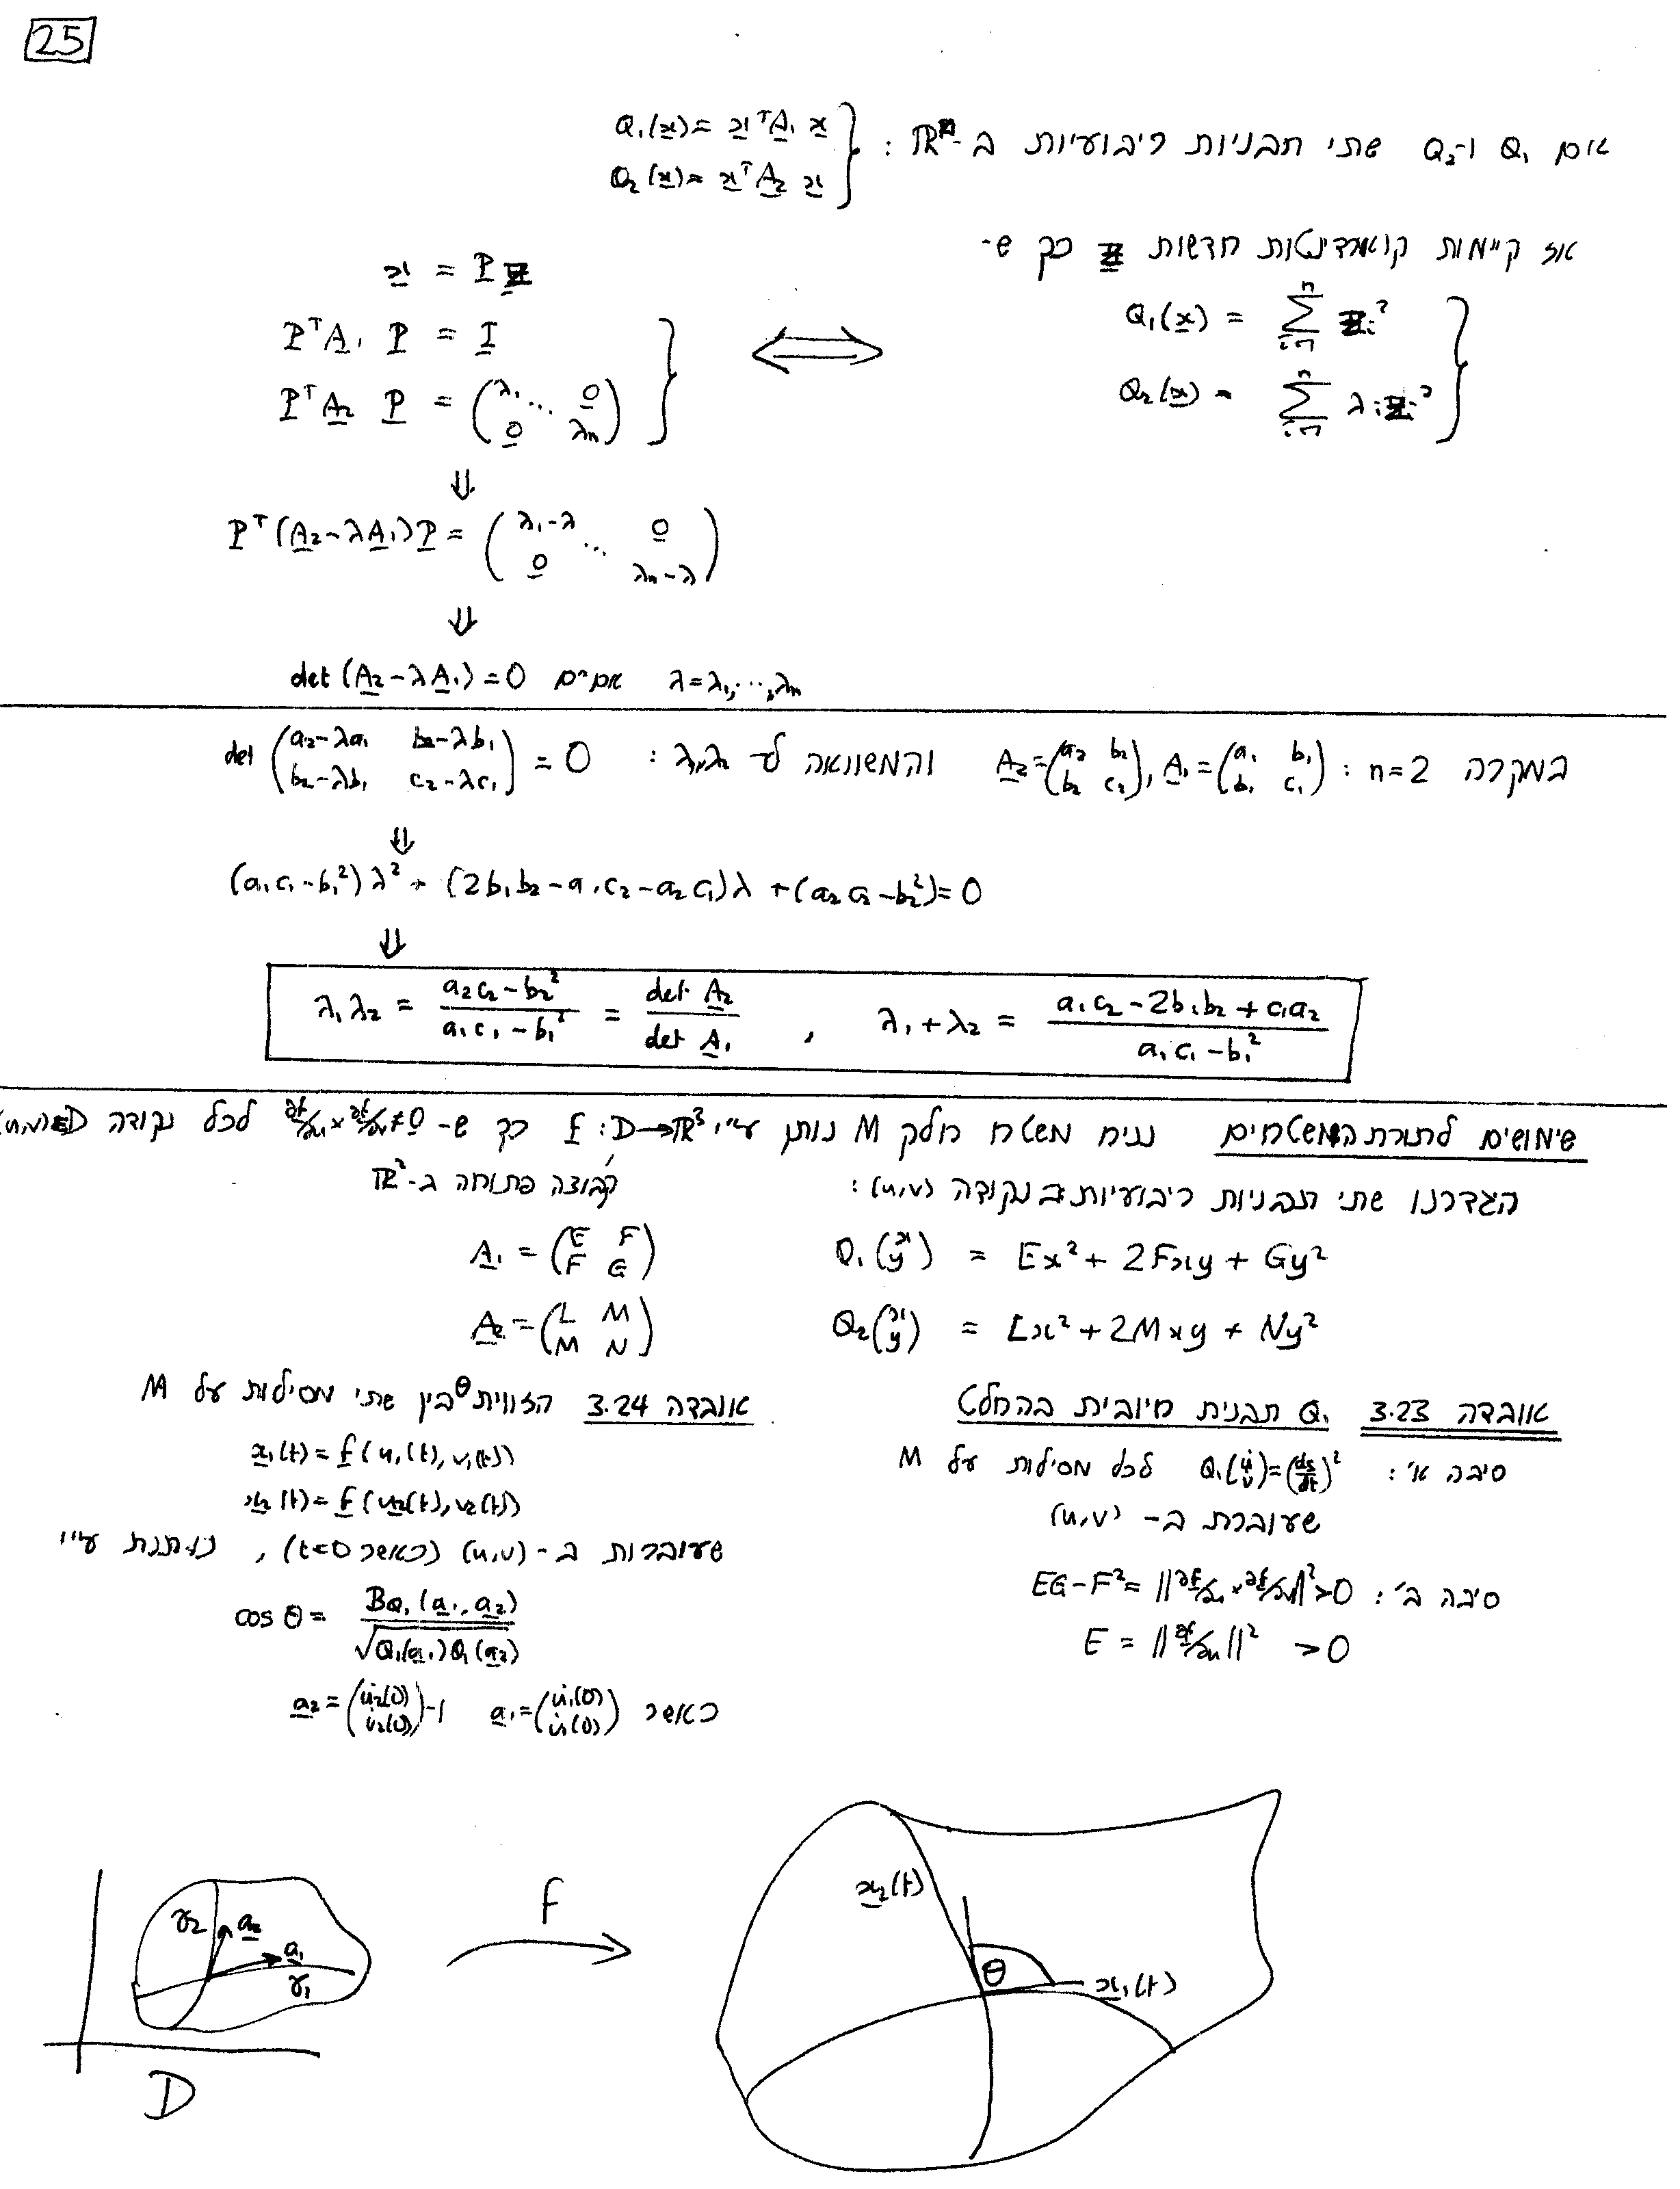 25
אם Q₁ ו-Q₂ שתי תבניות ריבועיות ב-ℝⁿ : Q₁(x) = xᵀA₁x
Q₂(x) = xᵀA₂x
אז קיימות קואורדינטות חדשות z כך ש-
Q₁(x) = Σᵢ₌₁ⁿ zᵢ²
Q₂(x) = Σᵢ₌₁ⁿ λᵢzᵢ²
⟺
x = Pz
PᵀA₁P = I
PᵀA₂P = (λ₁ ... 0 / 0 λₙ)
⇓
Pᵀ(A₂-λA₁)P = (λ₁-λ ... 0 / 0 λₙ-λ)
⇓
det(A₂-λA₁) = 0 אם״ם λ=λ₁,...,λₙ
במקרה n=2 : A₁=(a₁ b₁ / b₁ c₁), A₂=(a₂ b₂ / b₂ c₂) והמשוואה ל- λ₁,λ₂ : det(a₂-λa₁ b₂-λb₁ / b₂-λb₁ c₂-λc₁) = 0
⇓
(a₁c₁-b₁²)λ² + (2b₁b₂-a₁c₂-a₂c₁)λ + (a₂c₂-b₂²) = 0
⇓
λ₁λ₂ = (a₂c₂-b₂²)/(a₁c₁-b₁²) = det A₂/det A₁ , λ₁+λ₂ = (a₁c₂-2b₁b₂+c₁a₂)/(a₁c₁-b₁²)
שימושים לתורת המשטחים נניח משטח חלק M נותן ע״י f : D→ℝ³ כך ש- ∂f/∂u × ∂f/∂v ≠ 0 לכל נקודה
קבוצה פתוחה ב-ℝ²
הגדרנו שתי תבניות ריבועיות בנקודה (u,v) :
Q₁(x / y) = Ex² + 2Fxy + Gy² A₁ = (E F / F G)
Q₂(x / y) = Lx² + 2Mxy + Ny² A₂ = (L M / M N)
עובדה 3.23 Q₁ תבנית חיובית בהחלט
סיבה א׳ : Q₁(u̇ / v̇) = (ds/dt)² לכל מסילות על M
שעוברת ב- (u,v)
סיבה ב׳ : EG-F² = ||∂f/∂u × ∂f/∂v||² > 0
E = ||∂f/∂u||² > 0
עובדה 3.24 הזווית θ בין שתי מסילות על M
x₁(t) = f(u₁(t),v₁(t))
x₂(t) = f(u₂(t),v₂(t))
שעוברות ב- (u,v) (כאשר t=0) , נותנת ע״י
cos θ = B_Q₁(a₁,a₂)/√(Q₁(a₁)Q₁(a₂))
כאשר a₁=(u̇₁(0) / v̇₁(0)) ו- a₂=(u̇₂(0) / v̇₂(0))
γ₂ a₂ a₁ γ₁
D
f
x₂(t)
θ
x₁(t)